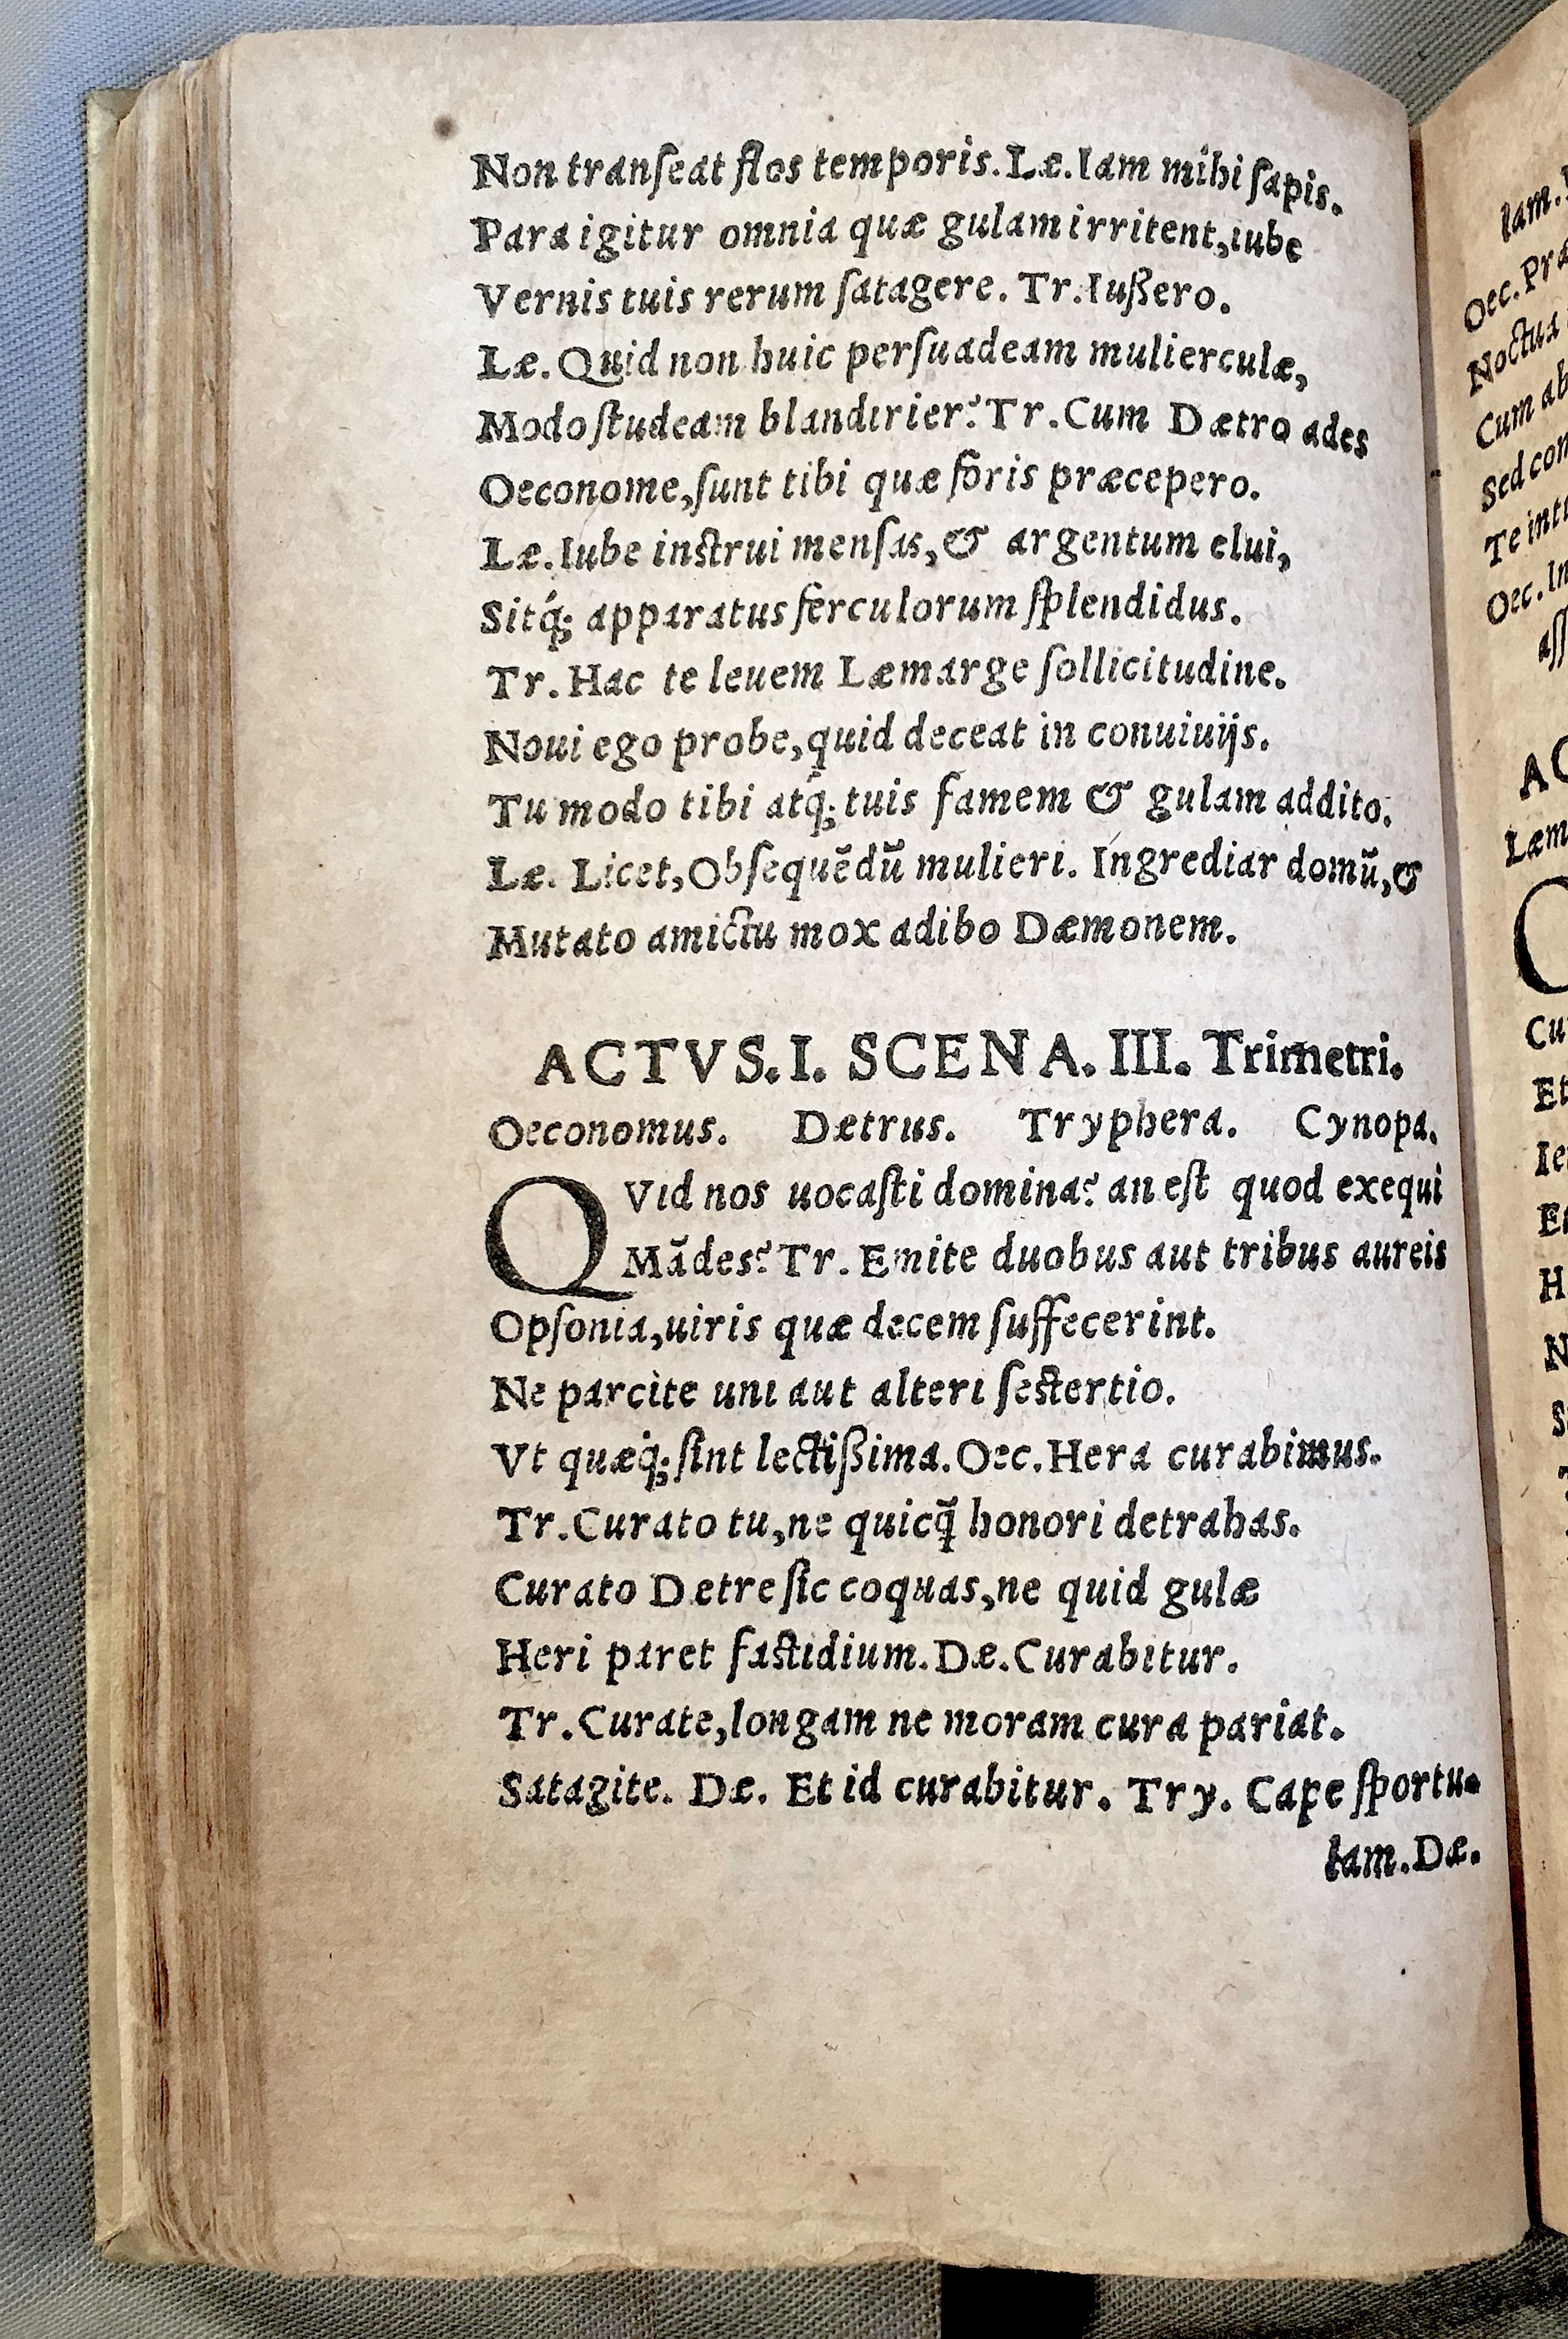 Non tranſeat flos temporis. Læ. Iam mihi ſapis.
Para igitur omnia quæ gulam irritent, iube
Vernis tuis rerum ſatagere. Tr. Iußero.
Læ. Quid non huic perſuadeam mulierculæ,
Modo ſtudeam blandirier? Tr. Cum Dætro ades
Oeconome, ſunt tibi quæ foris præcepero.
Læ. Iube inſtrui menſas, & argentum elui,
Sitq́; apparatus ferculorum ſplendidus.
Tr. Hac te leuem Læmarge ſollicitudine.
Noui ego probe, quid deceat in conuiuijs.
Tu modo tibi atq́; tuis famem & gulam addito.
Læ. Licet, Obſequẽdũ mulieri. Ingrediar domũ, &
Mutato amictu mox adibo Dæmonem.
ACTVS. I. SCENA. III. Trimetri.
Oeconomus. Dætrus. Tryphera. Cynopa.
QVid nos uocaſti domina? an eſt quod exequi
Mãdes? Tr. Emite duobus aut tribus aureis
Opſonia, uiris quæ decem ſuffecerint.
Ne parcite uni aut alteri ſeſtertio.
Vt quæq́; ſint lectißima. Oec. Hera curabimus.
Tr. Curato tu, ne quicq̃ honori detrahas.
Curato Dætre ſic coquas, ne quid gulæ
Heri paret faſtidium. Dæ. Curabitur.
Tr. Curate, longam ne moram cura pariat.
Satagite. Dæ. Et id curabitur. Try. Cape ſportu-
lam. Dæ.
Iam.
Oec. Pra
Noctua
Cum ab
Sed con
Te intr
Oec. In
aſſ
AC
Læm
C
Cu
Et
Ie
H
N
S